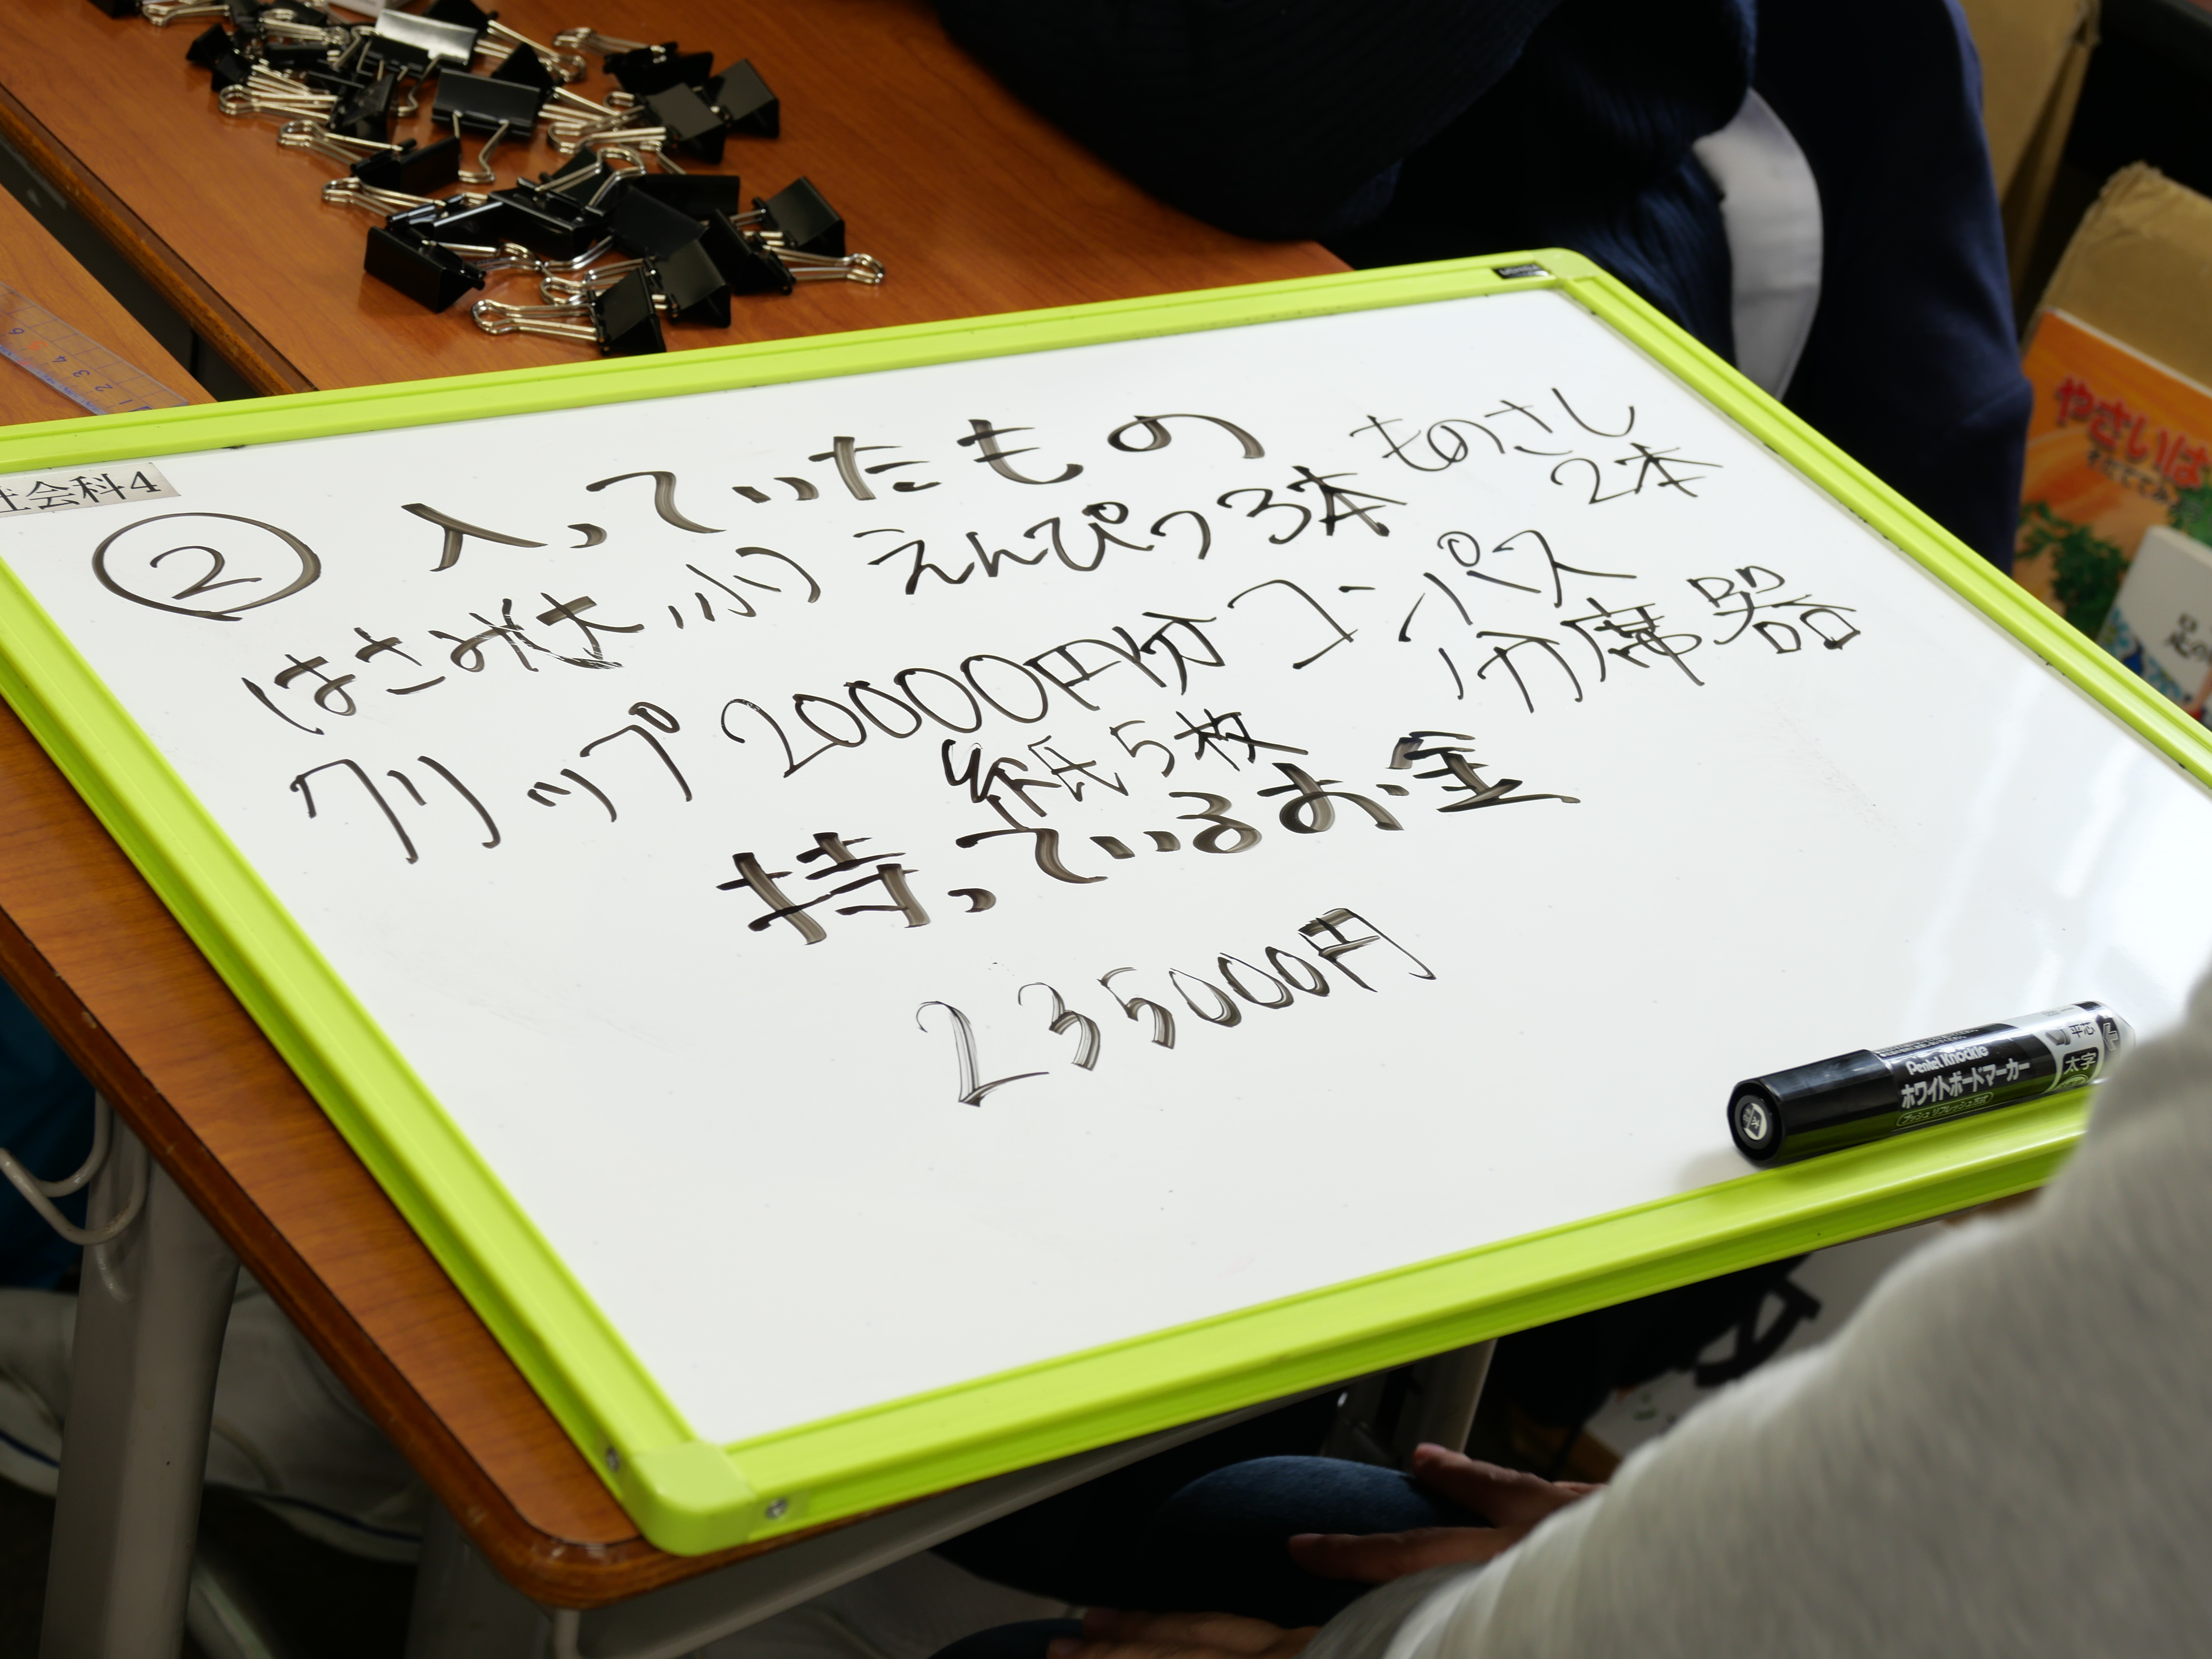 社会科4
② 入っていたもの
はさみ(大、小) えんぴつ3本 ものさし
2本
クリップ 20000円分 コンパス
紙5枚 分席器
持っているお金
235000円
Pentel Knockle
ホワイトボードマーカー
平芯
太字
やさいは